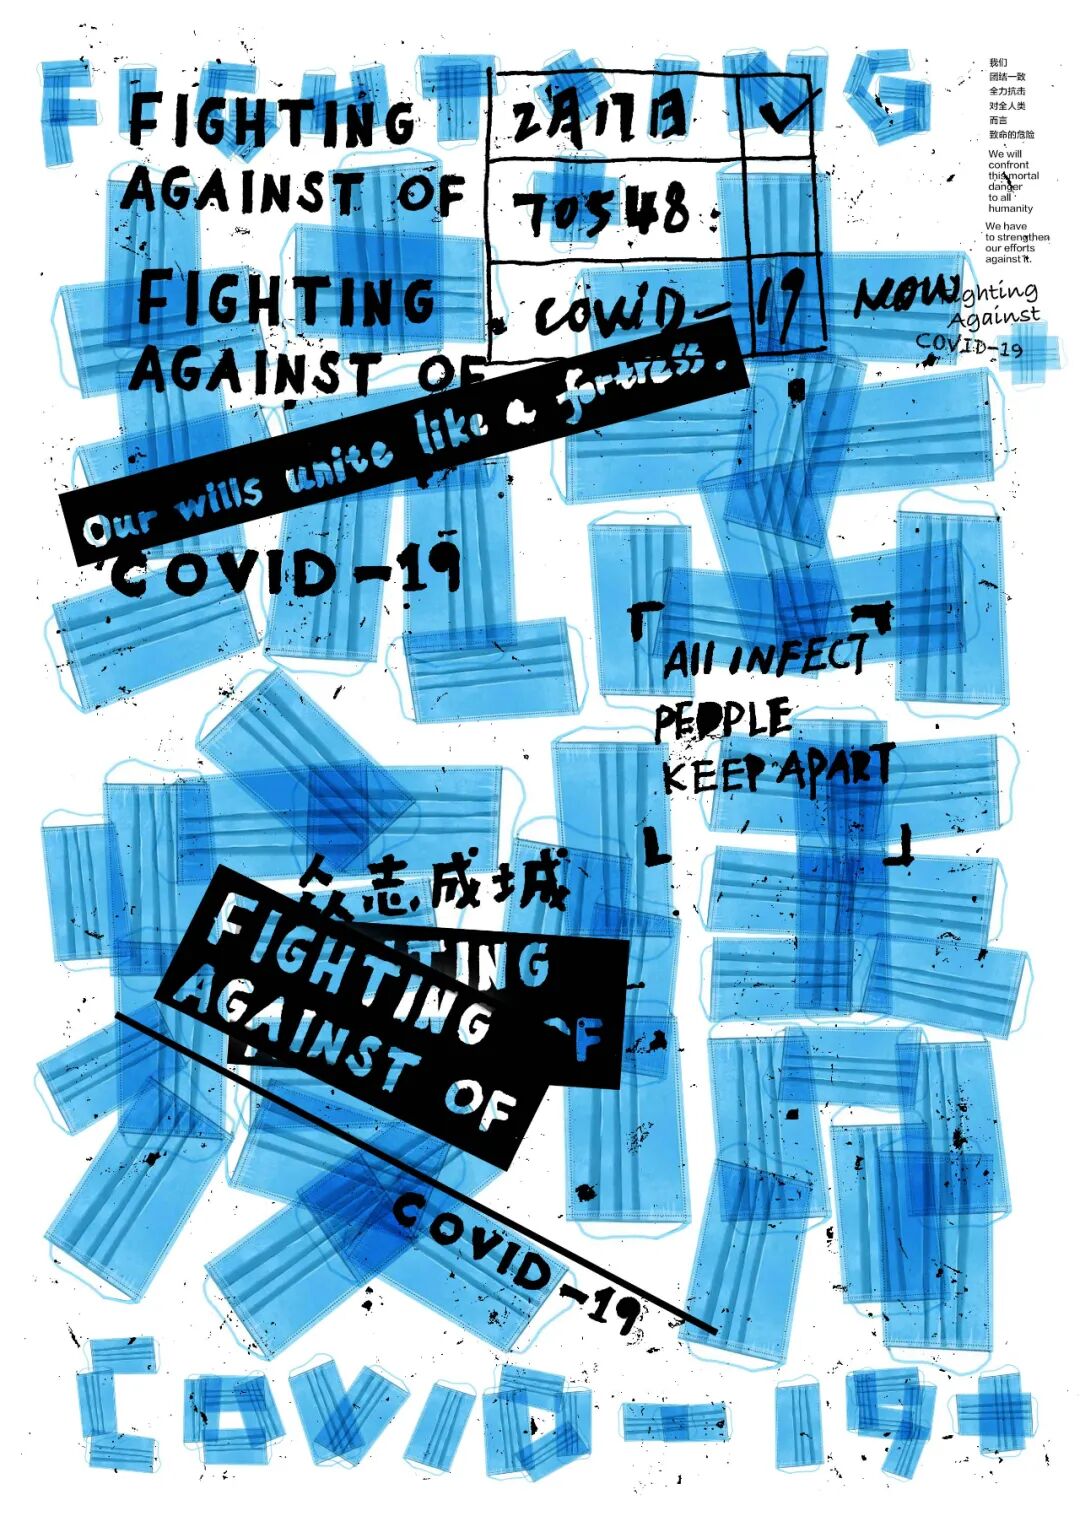 FIGHTING
FIGHTING
AGAINST OF
FIGHTING
AGAINST OF
2月17日 ✓
70548
COVID-19
NOW
我们
团结一致
全力抗击
对全人类
而言
致命的危险
We will
confront
this mortal
danger
to all
humanity
We have
to strengthen
our efforts
against it.
Fighting
Against
COVID-19
Our wills unite like a fortress.
COVID-19
抗击
疫情
「All INFECT」
PEOPLE
KEEP APART
众志成城
FIGHTING
AGAINST OF
TING
OF
COVID-19
COVID-19+